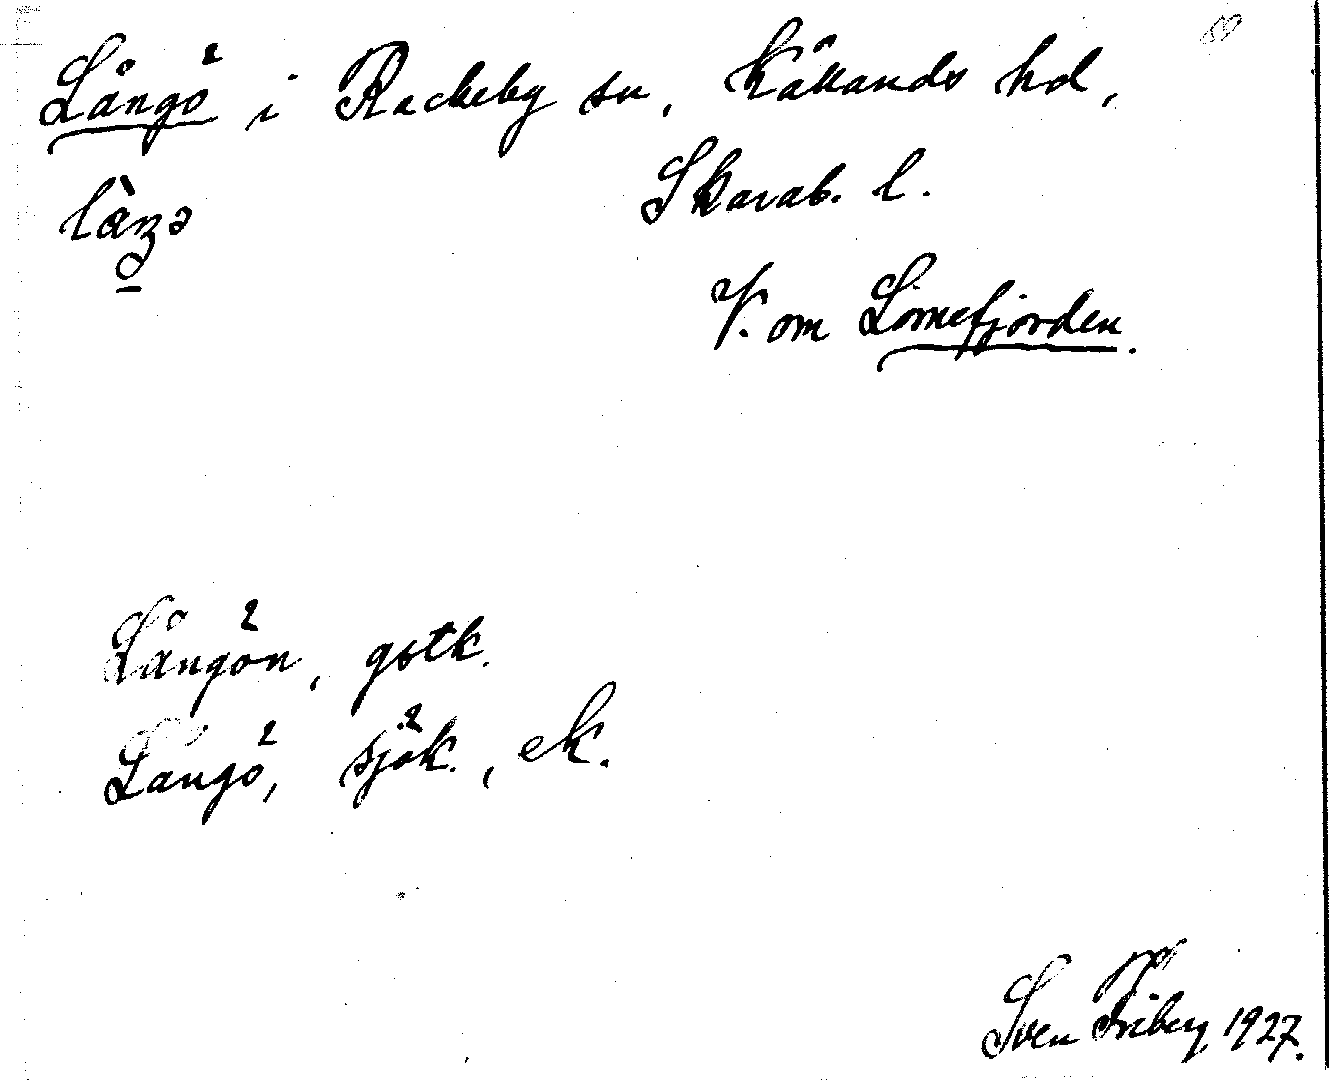 Långö i Rackeby sn, Kållands hd,
Skarab. l.
V. om Lomefjorden.
Långön, gstk.
Långö, sjök., ek.
Sven Friberg 1927.